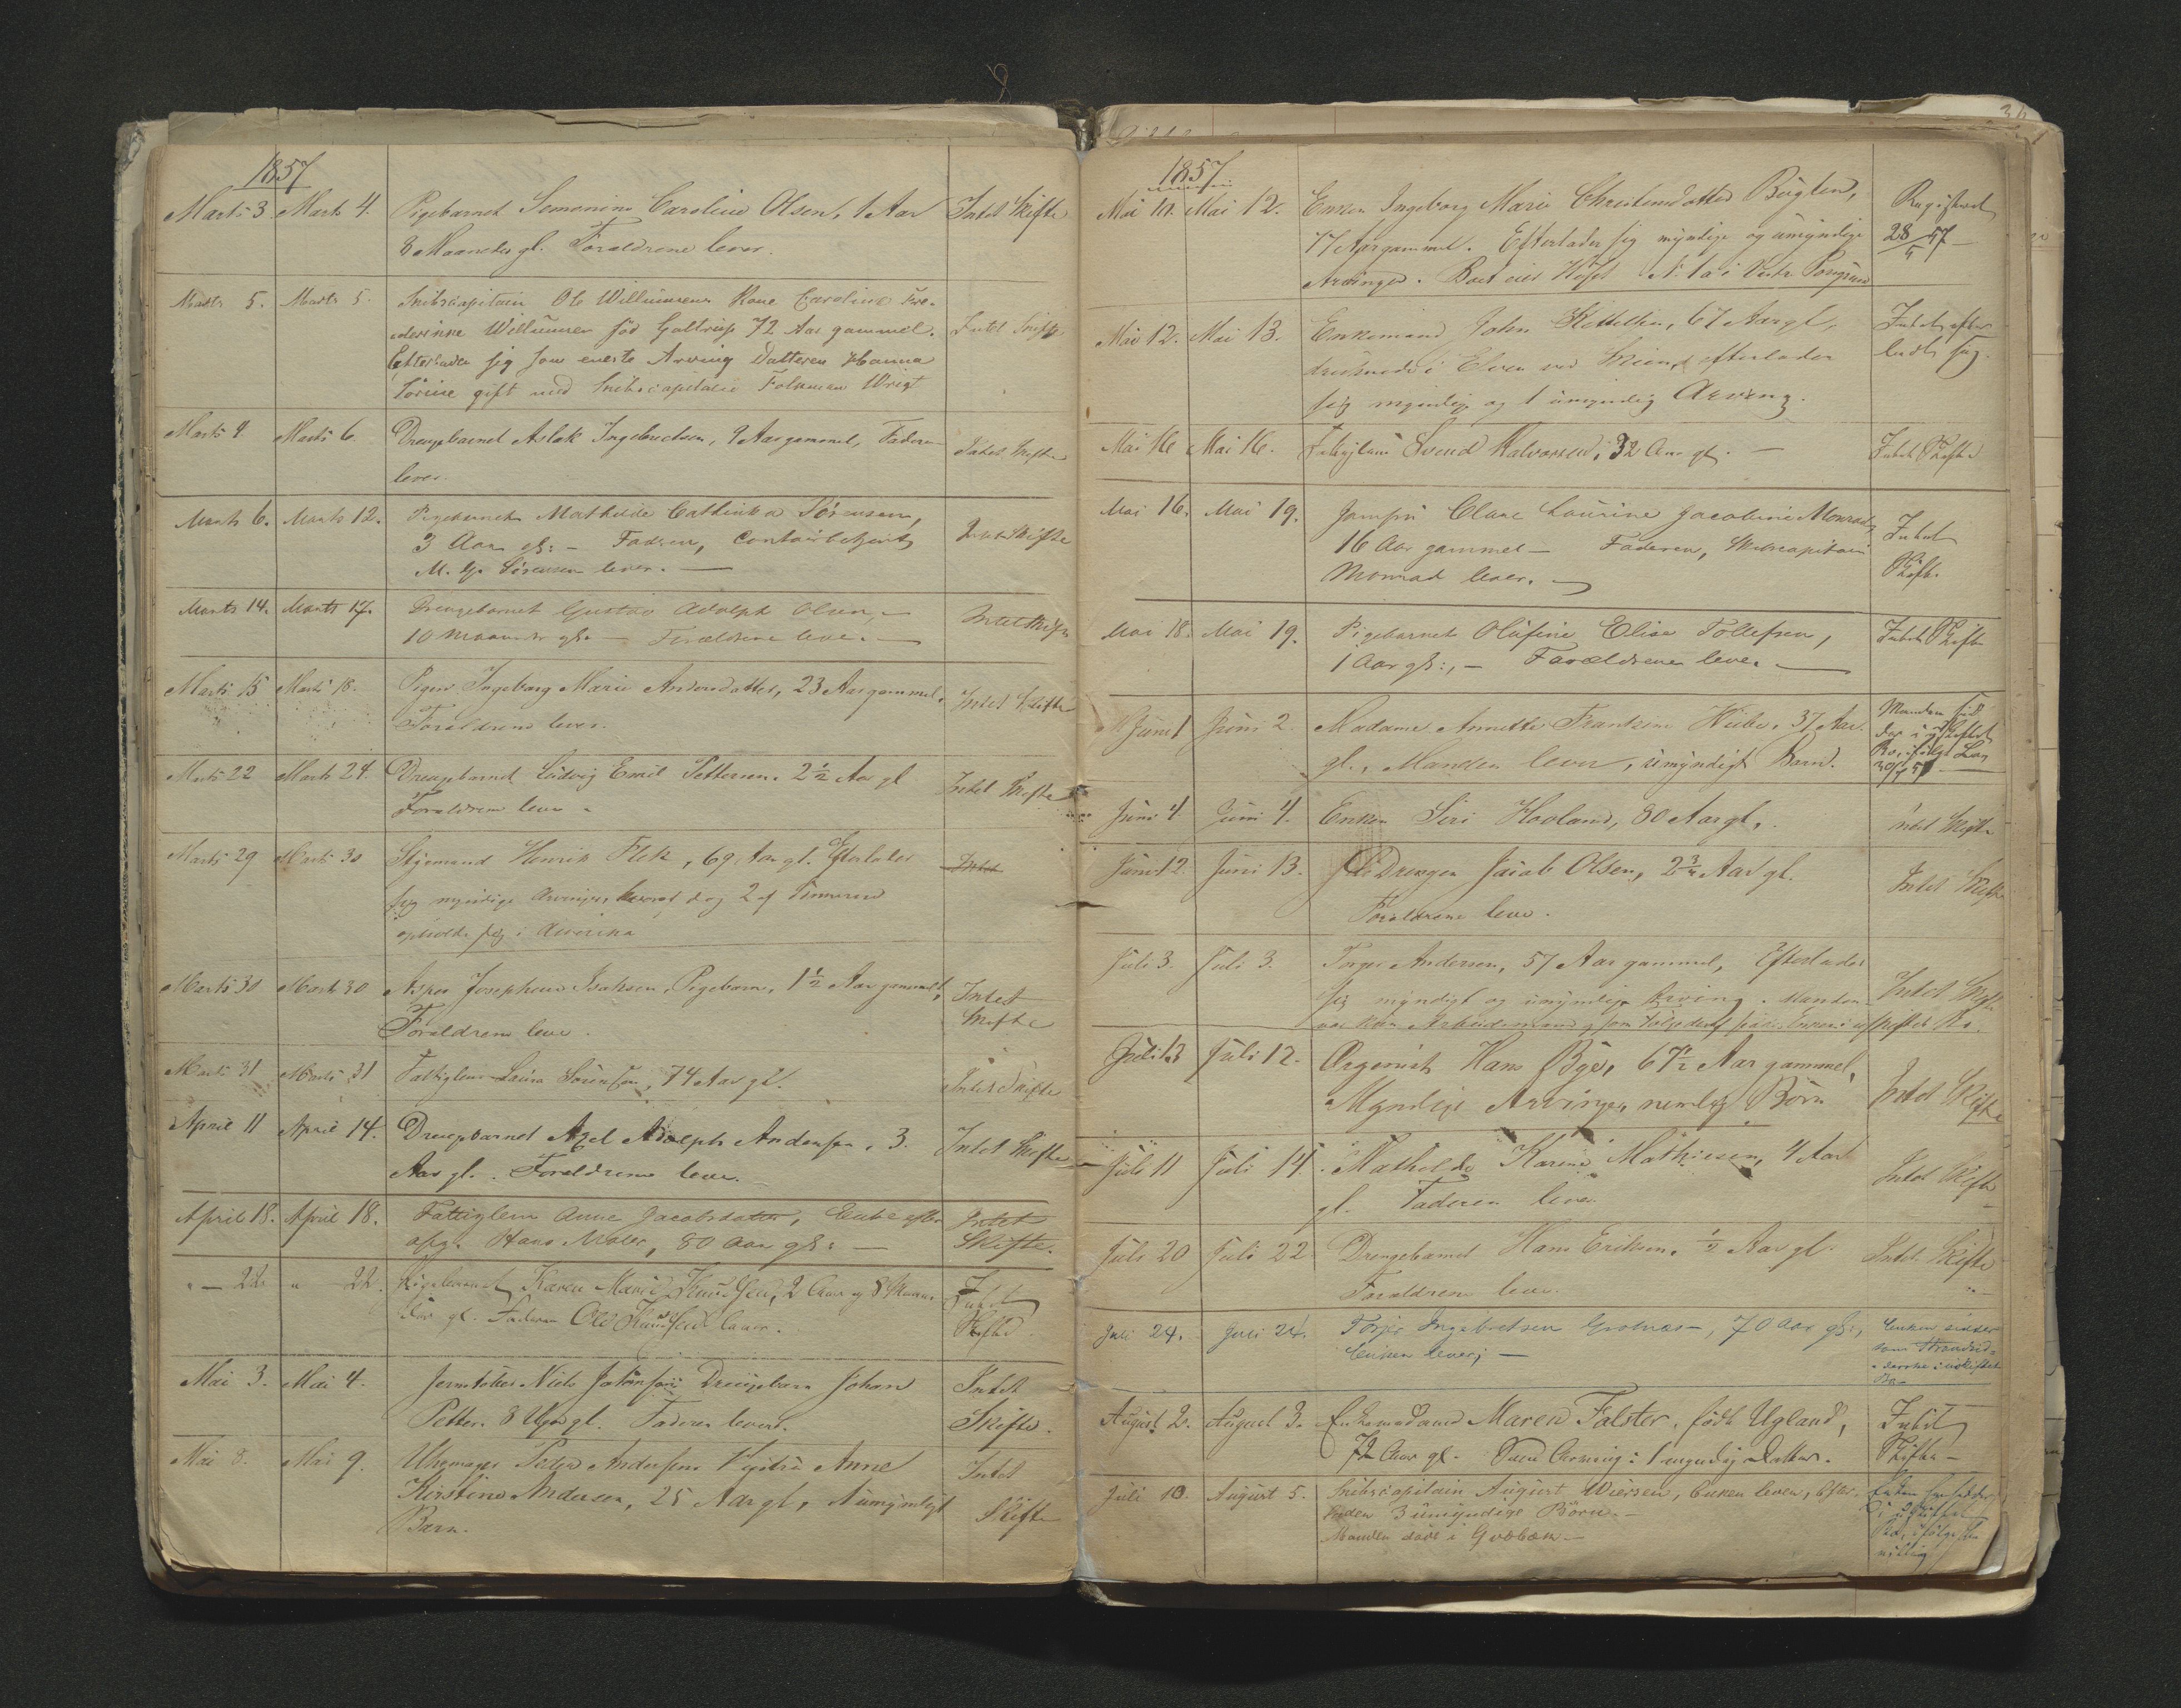 1857
Marts 3. Marts 4. Pigebarnet Semonine Caroline Olsen, 1 Aar Intet Skifte
8 Maaneder gl. Forældrene lever.
Marts 5. Marts 5. Skibscapitain Ole Willumsens Kone Caroline Fre-
Willumsen fød 72 Aar gammel. Intet Skifte
Efterlader sig som eneste Arving Datteren Hanna
Sørine gift med Skibscapitain Folkman Wrigt
Marts 4 Marts 6. Drengebarnet Aslak Ingebretsen, 9 Aar gammel, Faderen Intet Skifte
lever.
Marts 6. Marts 12. Pigebarnet Mathilde Cathinka Sørensen,
3 Aar gl: – Fadren, Contoirbetjent Intet Skifte
M. Sørensen lever. —
Marts 14. Marts 17. Drengebarnet Gustav Adolph Olsen, –
10 Maaneder gl. – Forældrene lever. — Intet Skifte
Marts 15 Marts 18. Pigen Ingeborg Marie Andersdatter, 23 Aar gammel. Intet Skifte
Forældrene lever.
Marts 22 Marts 24. Drengebarnet Ludvig Emil Pettersen. 2½ Aar gl Intet Skifte
Forældrene lever.
Marts 29 Marts 30 Styrmand Henrik Flek, 69 Aar gl. Efterlader Intet
sig myndige Arvinger, hvoraf dog 2 af Sønnerne
opholde sig i Amerika
Marts 30 Marts 30 Josephine Isaksen, Pigebarn, 1½ Aar gammelt, Intet
Forældrene lever. Skifte
Marts 31 Marts 31 Fattiglem Laura Sørensen, 74 Aar gl. Intet Skifte
April 11 April 14. Drengebarnet Axel Adolph Andersen, 3. Intet Skifte
Aar gl. Forældrene lever.
April 18. April 18. Fattiglem Anne Jacobsdatter, Enke efter Intet
afg. Hans Moler, 80 Aar gl: — Skifte.
" – 22. " 22. Pigebarnet Karen Marie Knudsen, 2 Aar og 8 Maane- Intet
der gl. Faderen Ole Knudsen lever. Skifte
Mai 3. Mai 4. Niels Drengebarn Johan Intet
Petter. 8 Uger gl. Faderen lever. Skifte.
Mai 8. Mai 9. Uhrmager Peder Andersens Hustru Anne Intet
Kirstine Andersen, 25 Aar gl, 1 umyndigt Skifte
Barn.
1857
Mai 10. Mai 12. Enken Ingeborg Marie Christensdatter Bugten, Registreret
77 Aar gammel. Efterlader sig myndige og umyndige 28/5 57
Arvinger. Boet eier Huset N. 1a i Vestre Porsgrund
Mai 12. Mai 13. Enkemand John Kittelsen, 67 Aar gl, Intet efter-
druknede i Elven ved Skien, efterlader ladt sig.
sig myndige og 1 umyndig Arving.
Mai 16 Mai 16. Svend Halvorsen, 32 Aar gl. — Intet Skifte
Mai 16. Mai 19. Jomfru Clare Laurine Jacobine Monrad,
16 Aar gammel – Faderen, Skibscapitain Intet
Monrad lever. — Skifte.
Mai 18. Mai 19. Pigebarnet Olufine Elise Tollefsen, Intet Skifte
1 Aar gl:, – Forældrene lever. —
Juni 1 Juni 2. Madame Annette Frantzine 37 Aar
gl., Manden lever, umyndigt Barn.
Juni 4 Juni 4. Enken Siri Haoland, 80 Aar gl. Intet Skifte
Juni 12. Juni 13. Drengen Jacob Olsen, 2¾ Aar gl. Intet Skifte
Forældrene lever.
Juli 3. Juli 3. Torger Andersen, 57 Aar gammel, Efterlader
sig myndigt og umyndige Arving. Manden Intet Skifte
var kun Arbeidsmand, som Følge deraf sidder Enken i uskiftet Bo.
Juli 13 Juli 12. Organist Hans Bye, 67½ Aar gammel,
Myndige Arvinger, nemlig Børn Intet Skifte
Juli 11 Juli 14. Mathilde Karine Mathisen, 4 Aar
gl. Faderen lever. Intet Skifte
Juli 20 Juli 22 Drengebarnet Hans Eriksen. ½ Aar gl. Intet Skifte
Forældrene lever.
Juli 24. Juli 24. Torjer Ingebretsen 70 Aar gl:, Enken sidder
Enken lever; — som i uskiftet
Bo –
August 2. August 3. Enkemadame Maren Falster, født Ugland, Intet
72 Aar gl. Arving: 1 myndig Datter. Skifte –
Juli 10. August 5. Skibscapitain August Wiersen, Enken lever, Efter-
lader 3 umyndige Børn. –
Manden døde i Holbæk –